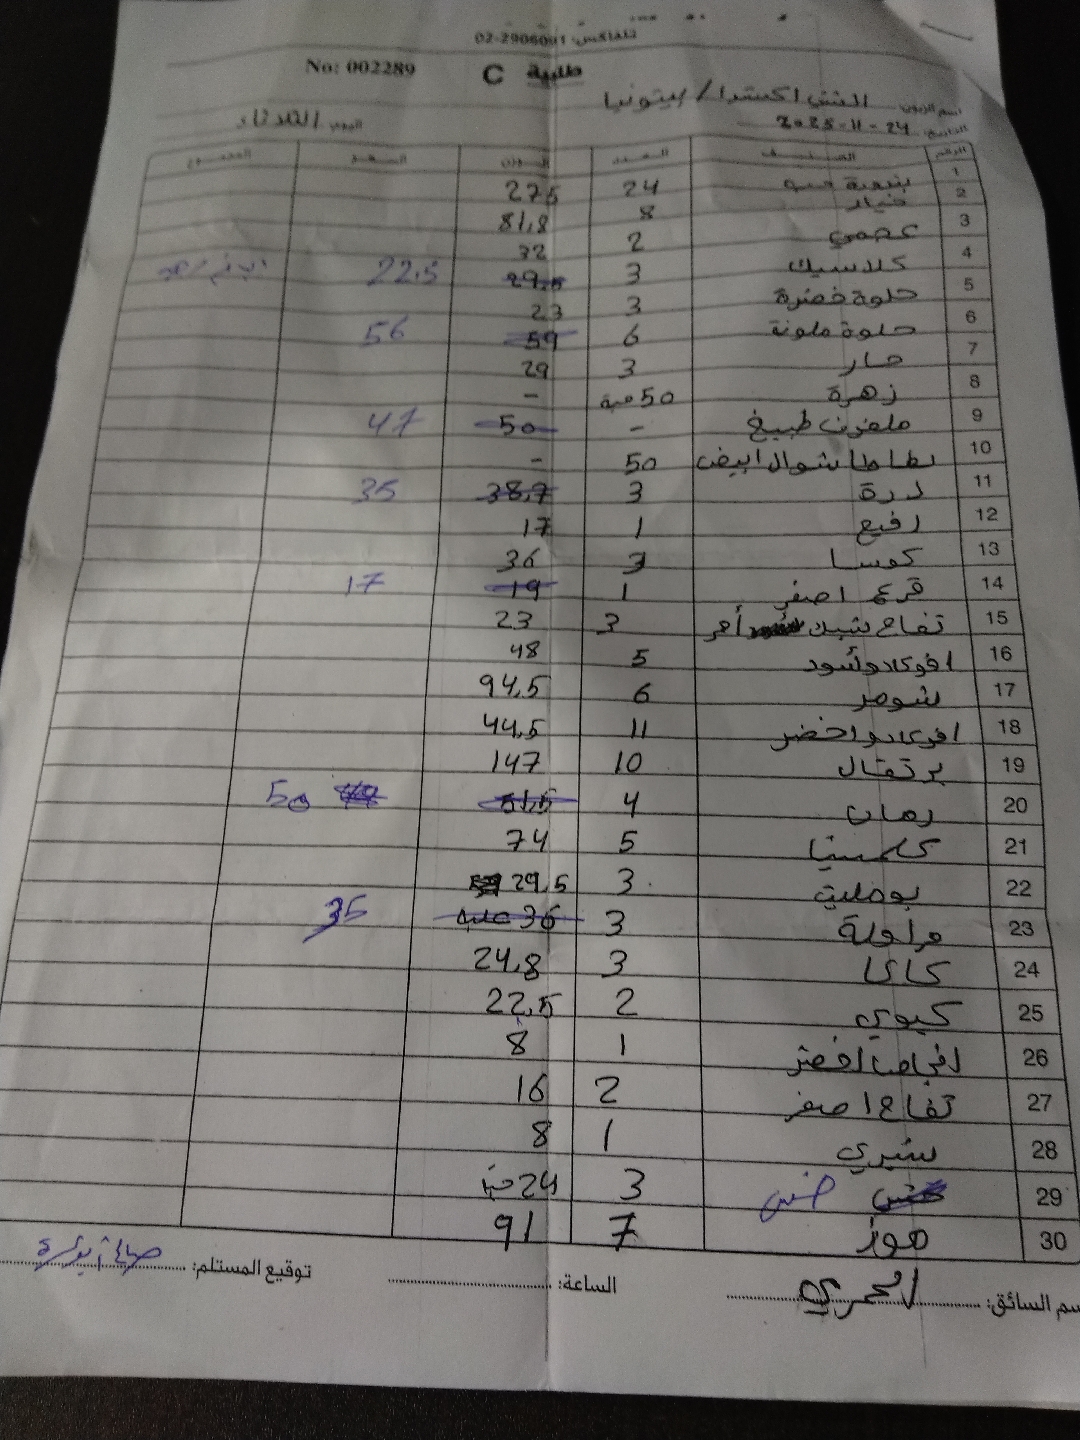 تلفاكس: 02-2906091
No: 002289
طلبية C
اسم الزبون: اكسترا / بيتونيا
التاريخ: 24-11-2025
اليوم: الثلاثاء
الرقم الصنف العدد الوزن السعر المجموع
1 بندورة 24 275
2 خيار 8 81,8
3 عجمي 2 32
4 كلاسيك 3 29,5 22.5
5 حلوة خضرة 3 23
6 حلوة ملونة 6 59 56
7 حار 3 29
8 زهرة 50 حبة -
9 ملفوف طبيخ - 50 47
10 بطاطا شوال ابيض 50 -
11 درة 3 38,7 35
12 رفيع 1 17
13 كوسا 3 36
14 قرع اصفر 1 19 17
15 تفاح أحمر 3 23
16 افوكادو أسود 5 48
17 شومر 6 94,5
18 افوكادو اخضر 11 44,5
19 برتقال 10 147
20 رمان 4 51,5 50
21 كلمنتينا 5 74
22 بوملي 3 29,5
23 فراولة 3 36 علبة 35
24 كاكا 3 24,8
25 كيوي 2 22,5
26 اخضر 1 8
27 تفاح اصفر 2 16
28 شيري 1 8
29 خس 3 24
30 موز 7 91
اسم السائق: العمري
الساعة:
توقيع المستلم: